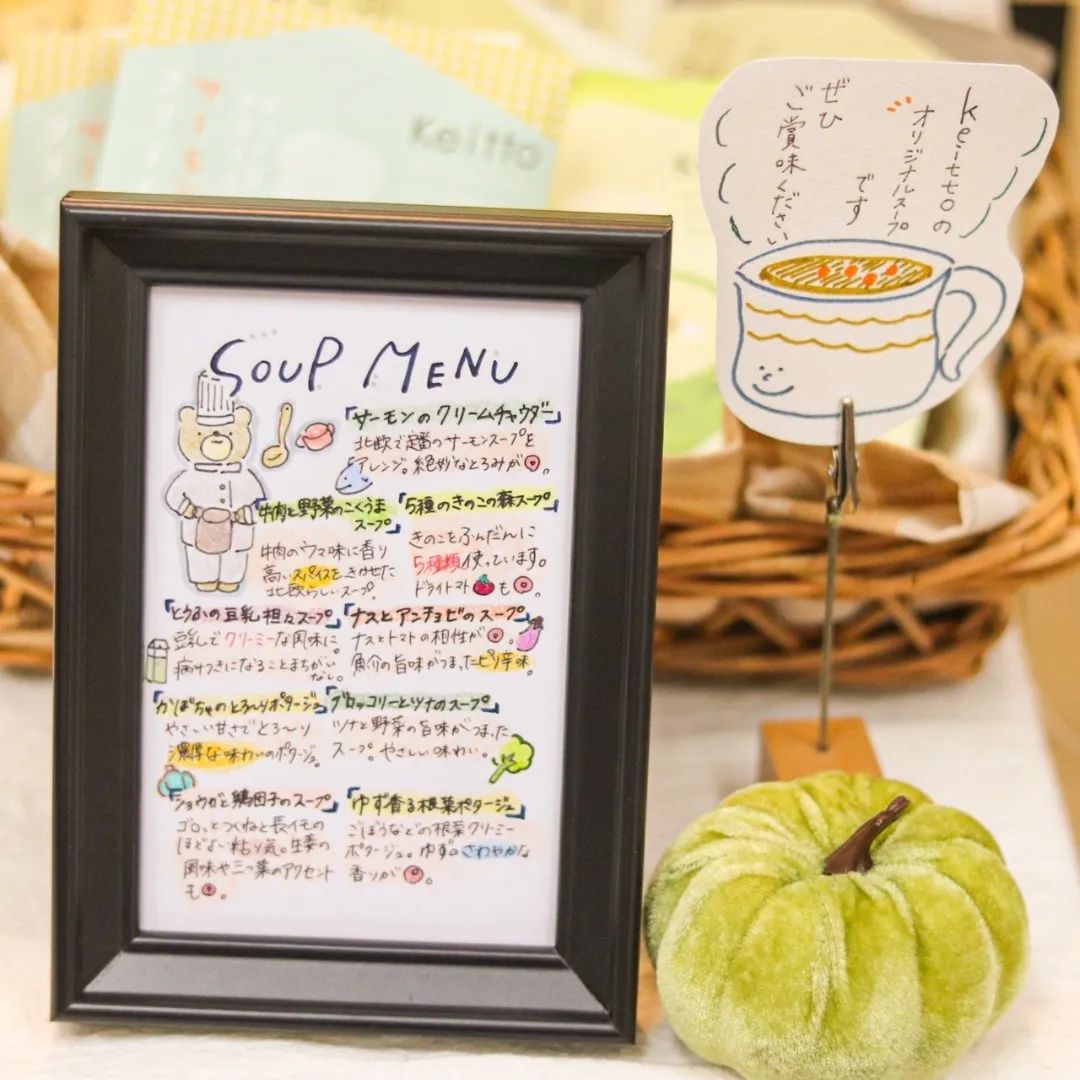 Keitto
keittoの
オリジナルスープ
です
ぜひ
ご賞味ください
SOUP MENU
「サーモンのクリームチャウダー」
北欧で定番のサーモンスープを
アレンジ。絶妙なとろみが◎。
「牛肉と野菜のこくうま
スープ」
牛肉のウマ味に香り
高いスパイスをきかせた
北欧らしいスープ。
「5種のきのこの森スープ」
きのこをふんだんに
5種類使っています。
ドライトマトも◎。
「とうふの豆乳担々スープ」
豆乳でクリーミーな風味に
病みつきになることまちがい
なし。
「ナスとアンチョビのスープ」
ナスとトマトの相性が◎。
魚介の旨味がつまったピリ辛味。
「かぼちゃのとろ〜りポタージュ」
やさしい甘さでとろ〜り
濃厚な味わいのポタージュ。
「ブロッコリーとツナのスープ」
ツナと野菜の旨味がつまった
スープ。やさしい味わい。
「ショウガと鶏団子のスープ」
ゴロッとつくねと長イモの
ほどよい粘り気。生姜の
風味や三つ葉のアクセント
も◎。
「ゆず香る根菜ポタージュ」
ごぼうなどの根菜クリーミー
ポタージュ。ゆずのさわやかな
香りが◎。